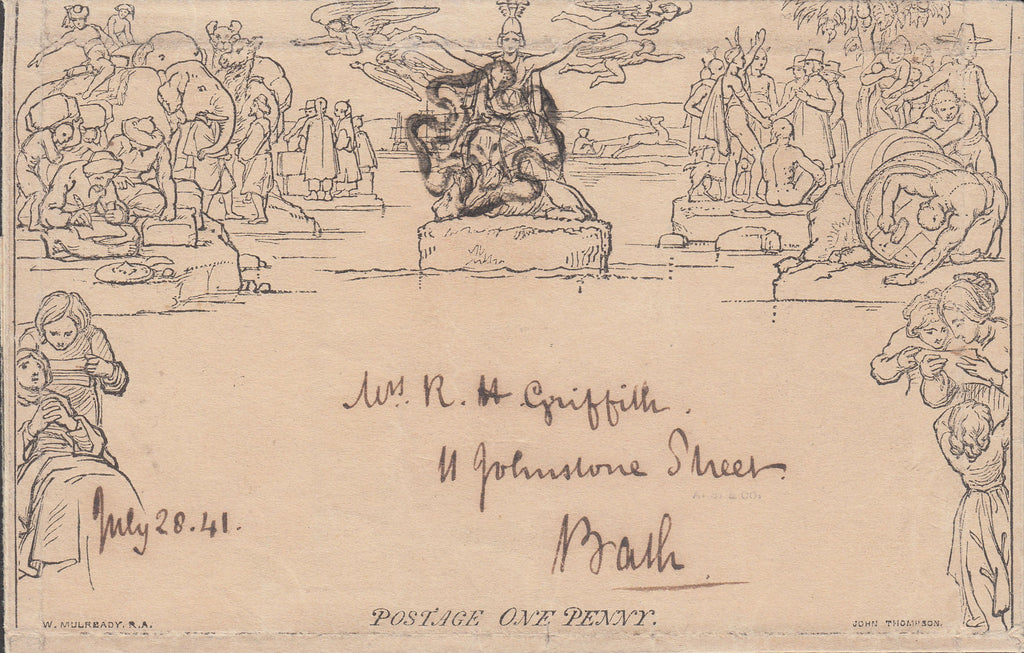 Mrs. R. H Griffith.
11 Johnstone Street
Bath
July 28.41.
POSTAGE ONE PENNY.
W. MULREADY. R.A.
JOHN THOMPSON.